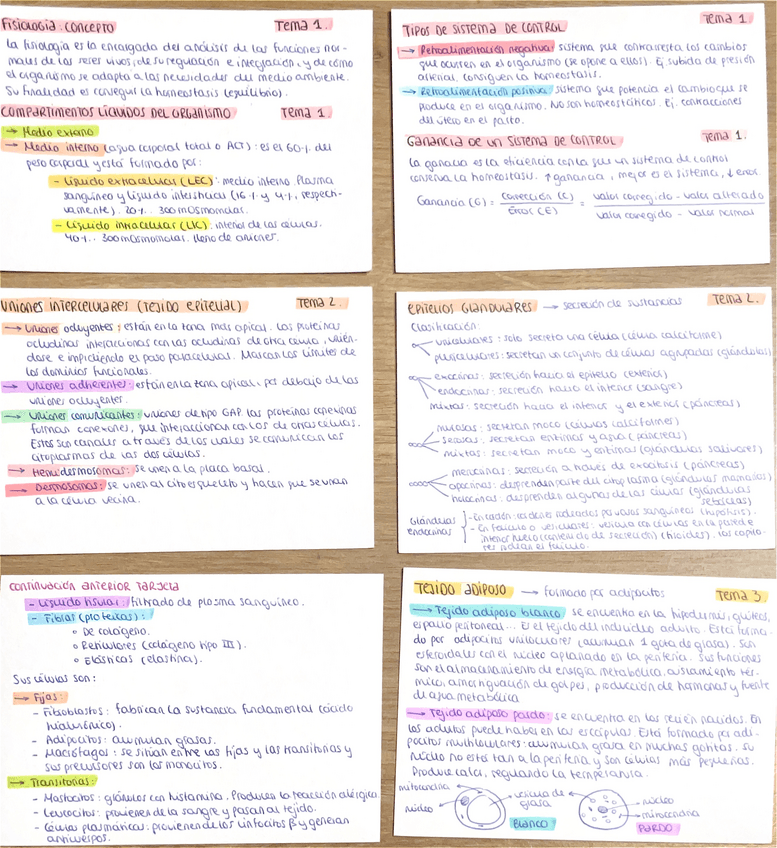 Fisiología: concepto Tema 1.
La fisiología es la encargada del análisis de las funciones nor-
males de los seres vivos, de su regulación e integración, y de cómo
el organismo se adapta a las necesidades del medio ambiente.
Su finalidad es conseguir la homeostasis (equilibrio).
Compartimentos líquidos del organismo Tema 1.
→ Medio externo
→ Medio interno (agua corporal total o ACT): es el 60%. del
peso corporal y está formado por:
- Líquido extracelular (LEC): medio interno. Plasma
sanguíneo y líquido intersticial (16% y 4%, respecti-
vamente). 20%. 300 mOsmomolar.
- Líquido intracelular (LIC): interior de las células.
40%. 300 mOsmomolar. Lleno de aniones.
Tipos de sistema de control Tema 1
→ Retroalimentación negativa: sistema que contrarresta los cambios
que ocurren en el organismo (se opone a ellos). Ej. subida de presión
arterial. Consiguen la homeostasis.
→ Retroalimentación positiva: sistema que potencia el cambio que se
produce en el organismo. No son homeostáticos. Ej. contracciones
del útero en el parto.
Ganancia de un sistema de control Tema 1.
La ganancia es la eficiencia con la que un sistema de control
conserva la homeostasis. ↑ganancia, mejor es el sistema, ↓error.
Ganancia (G) = corrección (C) / Error (E) = valor corregido - valor alterado / valor corregido - valor normal
Uniones intercelulares (tejido epitelial) Tema 2.
→ Uniones ocluyentes: están en la zona más apical. Las proteínas
ocludinas interaccionan con las ocludinas de otra célula, unién-
dose e impidiendo el paso paracelular. Marcan los límites de
los dominios funcionales.
→ Uniones adherentes: están en la zona apical, por debajo de las
uniones ocluyentes.
→ Uniones comunicantes: uniones de tipo GAP. Las proteínas conexinas
forman conexones, que interaccionan con los de otras células.
Estos son canales a través de los cuales se comunican los
citoplasmas de las dos células.
→ Hemidesmosomas: se unen a la placa basal.
→ Desmosomas: se unen al citoesqueleto y hacen que se unan
a la célula vecina.
Epitelios glandulares → secreción de sustancias Tema 2.
Clasificación:
unicelulares: solo secreta una célula (célula calciforme)
pluricelulares: secretan un conjunto de células agrupadas (glándulas)
exocrinas: secreción hacia el epitelio (exterior)
endocrinas: secreción hacia el interior (sangre)
mixtas: secreción hacia el interior y el exterior (páncreas)
mucosas: secretan moco (células calciformes)
serosas: secretan enzimas y agua (páncreas)
mixtas: secretan moco y enzimas (glándulas salivares)
merocrinas: secreción a través de exocitosis (páncreas)
apocrinas: desprenden parte del citoplasma (glándulas mamarias)
holocrinas: desprenden algunas de las células (glándulas
sebáceas)
Glándulas endocrinas
- En cordón: cordones rodeados por vasos sanguíneos (hipófisis).
- En folículo o vesiculares: vesícula con células en la pared e
interior hueco (contenido de secreción) (tiroides). Los capila-
res rodean el folículo.
continuación anterior tarjeta
- Líquido tisular: filtrado de plasma sanguíneo.
- Fibras (proteicas):
o De colágeno.
o Reticulares (colágeno tipo III).
o Elásticas (elastina).
Sus células son:
→ Fijas:
- Fibroblastos: fabrican la sustancia fundamental (ácido
hialurónico).
- Adipocitos: acumulan grasas.
- Macrófagos: se sitúan entre las fijas y las transitorias y
sus precursores son los monocitos.
→ Transitorias:
- Mastocitos: gránulos con histamina. Producen la reacción alérgica
- Leucocitos: provienen de la sangre y pasan al tejido.
- Células plasmáticas: provienen de los linfocitos β y generan
anticuerpos.
Tejido adiposo → formado por adipocitos Tema 3.
→ Tejido adiposo blanco: se encuentra en la hipodermis, glúteos,
espacio peritoneal... Es el tejido del individuo adulto. Está forma-
do por adipocitos uniloculares (acumulan 1 gota de grasa). Son
esferoidales con el núcleo aplanado en la periferia. Sus funciones
son el almacenamiento de energía metabólica, aislamiento tér-
mico, amortiguación de golpes, producción de hormonas y fuente
de agua metabólica
→ Tejido adiposo pardo: se encuentra en los recién nacidos. En
los adultos puede haber en las escápulas. Está formado por adi-
pocitos multiloculares: acumulan grasa en muchas gotitas. Su
núcleo no está tan a la periferia y son células más pequeñas.
Produce calor, regulando la temperatura.
mitocondria vesícula de
grasa
núcleo núcleo
mitocondria
Blanco Pardo